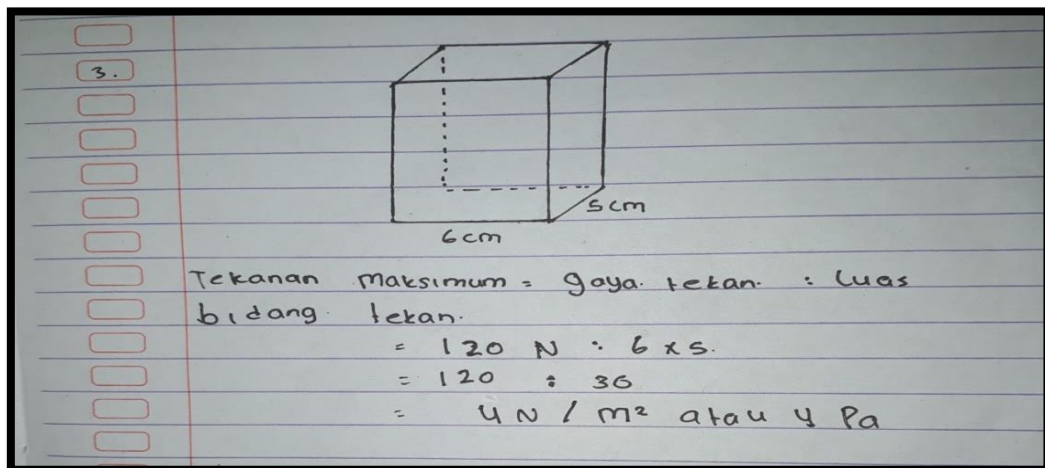 3.
5cm
6cm
Tekanan maksimum = gaya. tekan. : luas
bidang. tekan.
= 120 N : 6 x 5.
= 120 : 36
= 4 N / m² atau 4 Pa